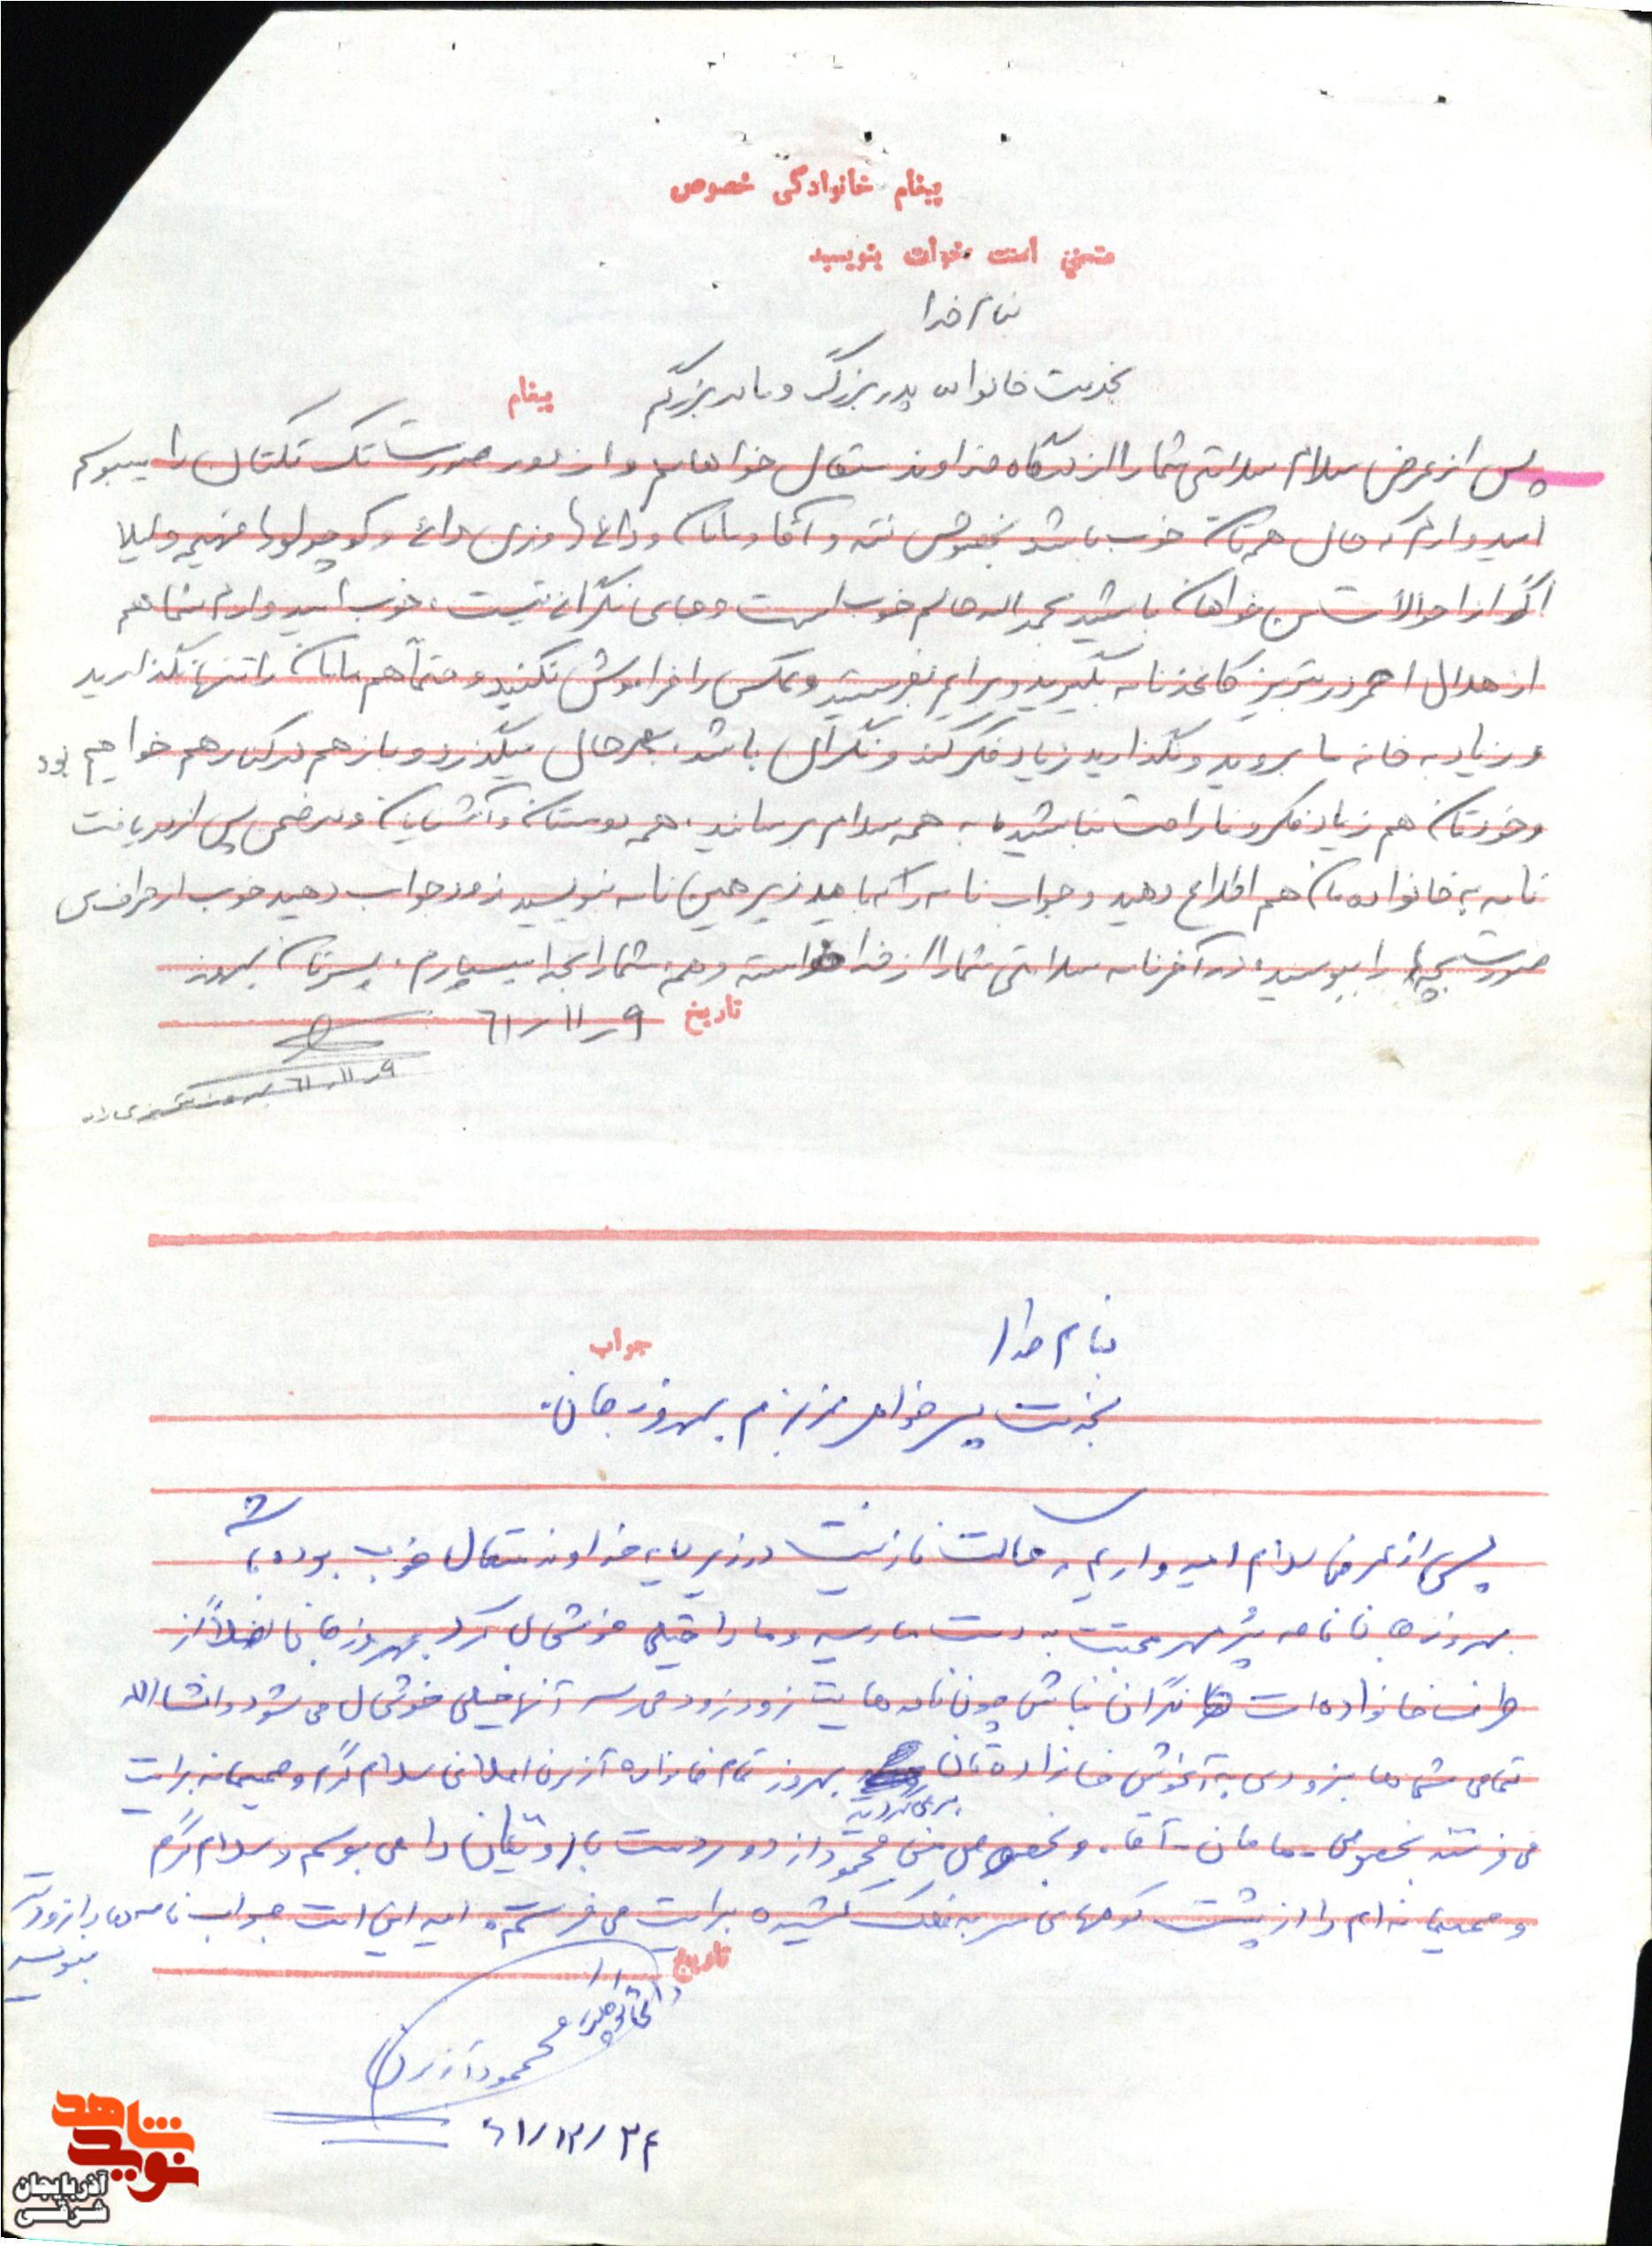 پیغام خانوادگی خصوصی
متمنی است خوانا بنویسید
بنام خدا
بخدمت خانواده پدربزرگ و مادربزرگم
پیغام
پس از عرض سلام سلامتی شما را از درگاه خداوند متعال خواهانم و از دور صورت تک تکتان را میبوسم
امیدوارم که حال همه‌تان خوب باشد بخصوص ننه و آقا و مامان و دائی‌ها و زن دائی و کوچولوها فهیمه و لیلا
اگر از احوالات من خواهان باشید بحمدالله حالم خوب است و جای نگرانی نیست. خوب امیدوارم شما هم
از هلال احمر در تبریز کاغذ نامه بگیرید و برایم بفرستید و عکس را فراموش نکنید و حتماً هم مامان را تنها نگذارید
و زیاد به خانه ما بروید و نگذارید زیاد فکر کند و نگران باشد. بهرحال میگذرد و باز هم در کنار هم خواهیم بود
و خودتان هم زیاد فکر و ناراحت نباشید. به همه سلام برسانید. همه دوستان و آشنایان و در ضمن پس از دریافت
نامه به خانواده‌مان هم اطلاع دهید و جواب نامه را که باید زیر همین نامه بنویسید زود جواب دهید خوب از طرف من
صورت بچه‌ها را ببوسید. در آخر نامه سلامتی شما را از خدا خواسته و همه شما را بخدا میسپارم. پسرتان بهروز
تاریخ ۹ر۱۱ر۶۱
۹ر۱۱ر۶۱ بهروز
بنام خدا
جواب
بخدمت پسر خواهر عزیزم بهروز جان.
پس از عرض سلام امیدواریم که حالت نازنینت در زیر سایه خداوند متعال خوب بوده باشد
بهروز جان نامه پر مهر محبتت به دست ما رسید و ما را خیلی خوشحال کرد بهروز جان اصلاً از
طرف خانواده‌ات نگران نباش چون نامه‌هایت زود زود می‌رسد آنها خیلی خوشحال می‌شود و انشاالله
تمامی شماها بزودی به آغوش خانواده‌تان برمی‌گردید بهروز تمام خانواده سلام گرم و صمیمانه برایت
می‌فرستند بخصوص - مامان - آقا. و بخصوص من محمود از دور دست با روتان را می‌بوسم و سلام گرم
و صمیمانه‌ام را از پشت کوههای سر به فلک کشیده برایت می‌فرستم. امید این است جواب نامه‌ها را زودتر
بنویسید
تاریخ
محمود
۶۱/۱۲/۲۴
نوید شاهد
آذربایجان
شرقی